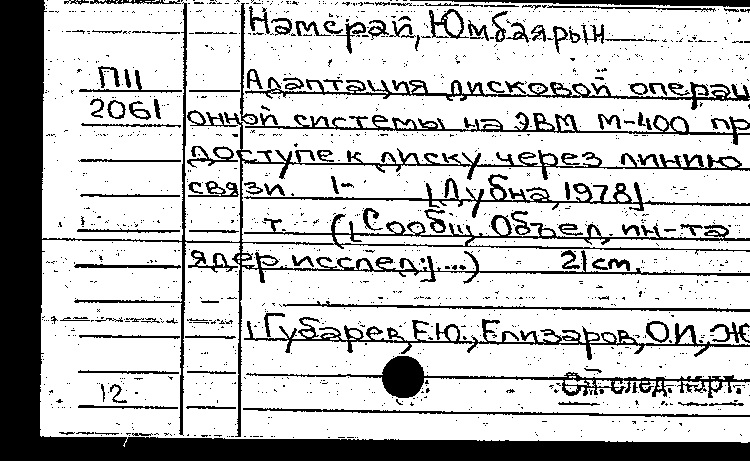 Намсрай, Юмбаярын
П11 Адаптация дисковой операц
2061 онной системы на ЭВМ М-400 пр
доступе к диску через линию
связи. 1- [Дубна, 1978].
т. ([Сообщ. Объед. ин-та
ядер. исслед.] ...) 21cm.
1 Губарев, Е.Ю., Елизаров, О.И., Ж
12 См. след. карт.